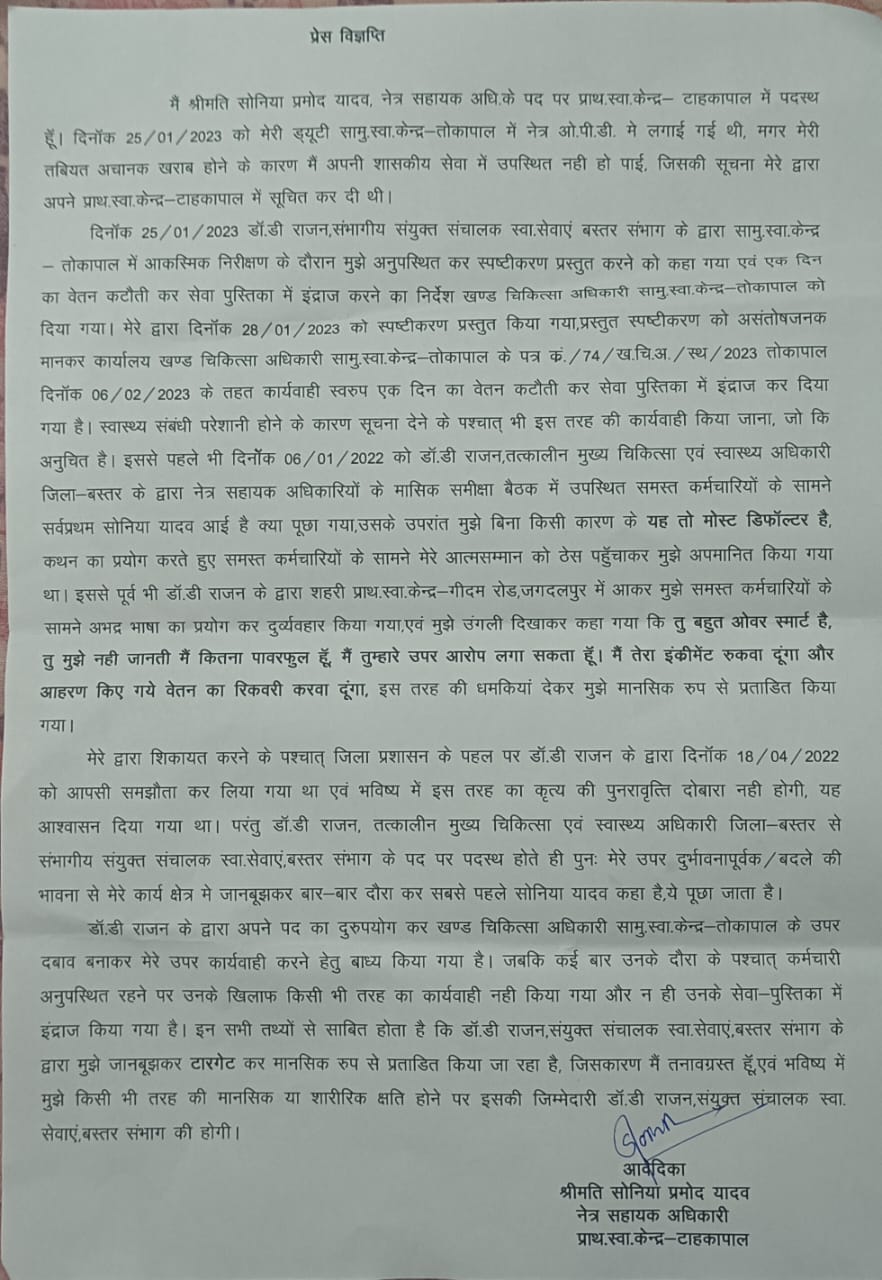 प्रेस विज्ञप्ति
मैं श्रीमति सोनिया प्रमोद यादव, नेत्र सहायक अधि.के पद पर प्राथ.स्वा.केन्द्र– टाहकापाल में पदस्थ
हूँ। दिनॉक 25/01/2023 को मेरी ड्यूटी सामु.स्वा.केन्द्र–तोकापाल में नेत्र ओ.पी.डी. मे लगाई गई थी, मगर मेरी
तबियत अचानक खराब होने के कारण मैं अपनी शासकीय सेवा में उपस्थित नही हो पाई, जिसकी सूचना मेरे द्वारा
अपने प्राथ.स्वा.केन्द्र–टाहकापाल में सूचित कर दी थी।
दिनॉक 25/01/2023 डॉ.डी राजन,संभागीय संयुक्त संचालक स्वा.सेवाएं बस्तर संभाग के द्वारा सामु.स्वा.केन्द्र
– तोकापाल में आकस्मिक निरीक्षण के दौरान मुझे अनुपस्थित कर स्पष्टीकरण प्रस्तुत करने को कहा गया एवं एक दिन
का वेतन कटौती कर सेवा पुस्तिका में इंद्राज करने का निर्देश खण्ड चिकित्सा अधिकारी सामु.स्वा.केन्द्र–तोकापाल को
दिया गया। मेरे द्वारा दिनॉक 28/01/2023 को स्पष्टीकरण प्रस्तुत किया गया,प्रस्तुत स्पष्टीकरण को असंतोषजनक
मानकर कार्यालय खण्ड चिकित्सा अधिकारी सामु.स्वा.केन्द्र–तोकापाल के पत्र कं./74/ख.चि.अ./स्थ/2023 तोकापाल
दिनॉक 06/02/2023 के तहत कार्यवाही स्वरुप एक दिन का वेतन कटौती कर सेवा पुस्तिका में इंद्राज कर दिया
गया है। स्वास्थ्य संबंधी परेशानी होने के कारण सूचना देने के पश्चात् भी इस तरह की कार्यवाही किया जाना, जो कि
अनुचित है। इससे पहले भी दिनॉक 06/01/2022 को डॉ.डी राजन,तत्कालीन मुख्य चिकित्सा एवं स्वास्थ्य अधिकारी
जिला–बस्तर के द्वारा नेत्र सहायक अधिकारियों के मासिक समीक्षा बैठक में उपस्थित समस्त कर्मचारियों के सामने
सर्वप्रथम सोनिया यादव आई है क्या पूछा गया,उसके उपरांत मुझे बिना किसी कारण के यह तो मोस्ट डिफॉल्टर है,
कथन का प्रयोग करते हुए समस्त कर्मचारियों के सामने मेरे आत्मसम्मान को ठेस पहुँचाकर मुझे अपमानित किया गया
था। इससे पूर्व भी डॉ.डी राजन के द्वारा शहरी प्राथ.स्वा.केन्द्र–गीदम रोड,जगदलपुर में आकर मुझे समस्त कर्मचारियों के
सामने अभद्र भाषा का प्रयोग कर दुर्व्यवहार किया गया,एवं मुझे उंगली दिखाकर कहा गया कि तु बहुत ओवर स्मार्ट है,
तु मुझे नही जानती मैं कितना पावरफुल हूँ, मैं तुम्हारे उपर आरोप लगा सकता हूँ। मैं तेरा इंकीमेंट रुकवा दूंगा और
आहरण किए गये वेतन का रिकवरी करवा दूंगा, इस तरह की धमकियां देकर मुझे मानसिक रुप से प्रताडित किया
गया।
मेरे द्वारा शिकायत करने के पश्चात् जिला प्रशासन के पहल पर डॉ.डी राजन के द्वारा दिनॉक 18/04/2022
को आपसी समझौता कर लिया गया था एवं भविष्य में इस तरह का कृत्य की पुनरावृत्ति दोबारा नही होगी, यह
आश्वासन दिया गया था। परंतु डॉ.डी राजन, तत्कालीन मुख्य चिकित्सा एवं स्वास्थ्य अधिकारी जिला–बस्तर से
संभागीय संयुक्त संचालक स्वा.सेवाएं,बस्तर संभाग के पद पर पदस्थ होते ही पुनः मेरे उपर दुर्भावनापूर्वक/बदले की
भावना से मेरे कार्य क्षेत्र मे जानबूझकर बार–बार दौरा कर सबसे पहले सोनिया यादव कहा है,ये पूछा जाता है।
डॉ.डी राजन के द्वारा अपने पद का दुरुपयोग कर खण्ड चिकित्सा अधिकारी सामु.स्वा.केन्द्र–तोकापाल के उपर
दबाव बनाकर मेरे उपर कार्यवाही करने हेतु बाध्य किया गया है। जबकि कई बार उनके दौरा के पश्चात् कर्मचारी
अनुपस्थित रहने पर उनके खिलाफ किसी भी तरह का कार्यवाही नही किया गया और न ही उनके सेवा–पुस्तिका में
इंद्राज किया गया है। इन सभी तथ्यों से साबित होता है कि डॉ.डी राजन,संयुक्त संचालक स्वा.सेवाएं,बस्तर संभाग के
द्वारा मुझे जानबूझकर टारगेट कर मानसिक रुप से प्रताडित किया जा रहा है, जिसकारण मैं तनावग्रस्त हूँ,एवं भविष्य में
मुझे किसी भी तरह की मानसिक या शारीरिक क्षति होने पर इसकी जिम्मेदारी डॉ.डी राजन,संयुक्त संचालक स्वा.
सेवाएं,बस्तर संभाग की होगी।
आवेदिका
श्रीमति सोनिया प्रमोद यादव
नेत्र सहायक अधिकारी
प्राथ.स्वा.केन्द्र–टाहकापाल